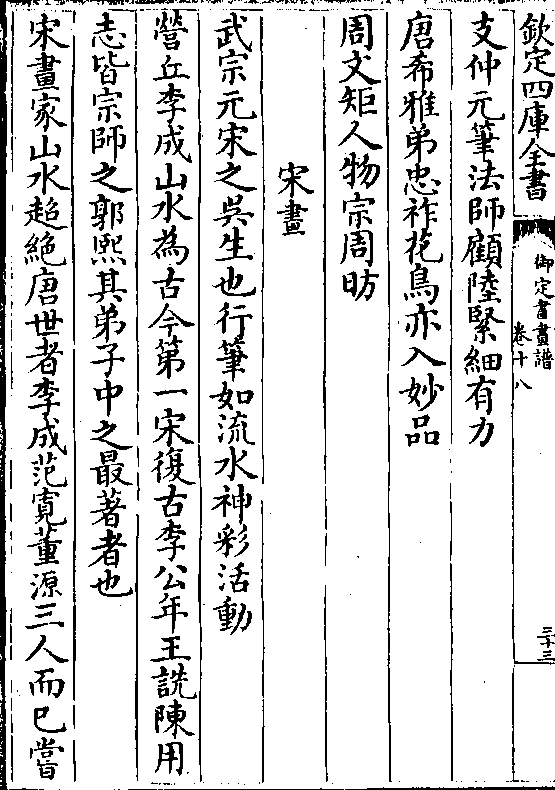 欽定四庫全書
御定書畫譜
卷十八
三十三
支仲元筆法師顧陸緊細有力
唐希雅弟忠祚花鳥亦入妙品
周文矩人物宗周昉
宋畫
武宗元宋之吳生也行筆如流水神彩活動
營丘李成山水為古今第一宋復古李公年王詵陳用
志皆宗師之郭熙其弟子中之最著者也
宋畫家山水超絶唐世者李成范寛董源三人而已嘗